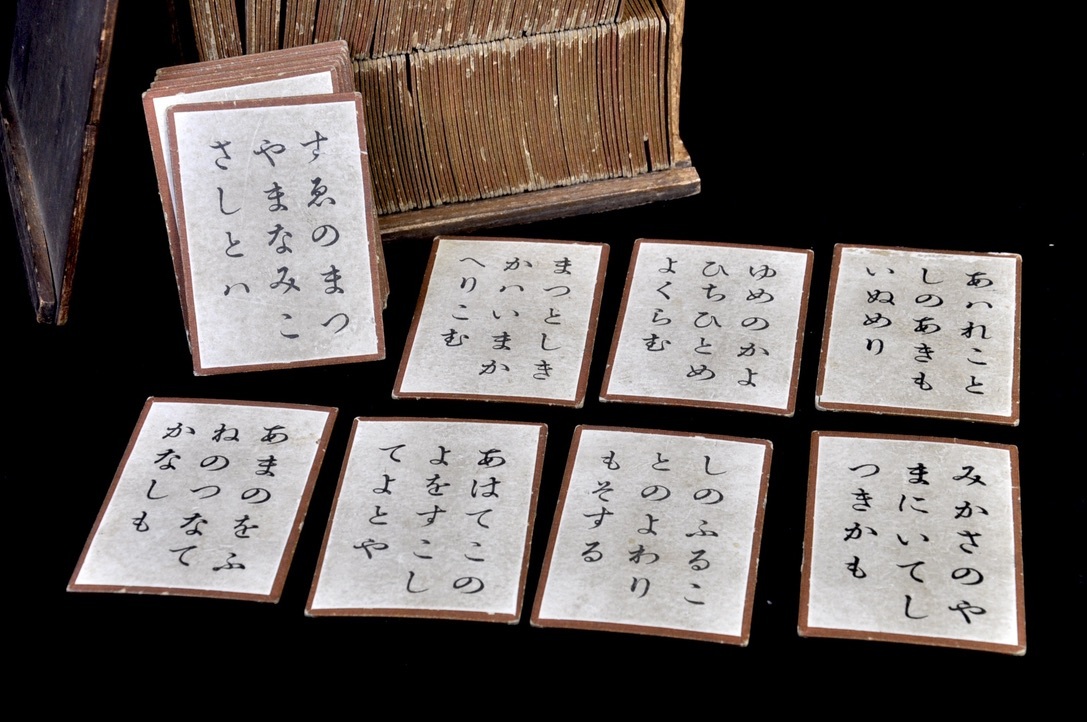 すゑのまつ
やまなみこ
さしとハ
まつとしき
かハいまか
へりこむ
ゆめのかよ
ひちひとめ
よくらむ
あハれこと
しのあきも
いぬめり
あまのをふ
ねのつなて
かなしも
あはてこの
よをすこし
てよとや
しのふるこ
とのよわり
もそする
みかさのや
まにいてし
つきかも